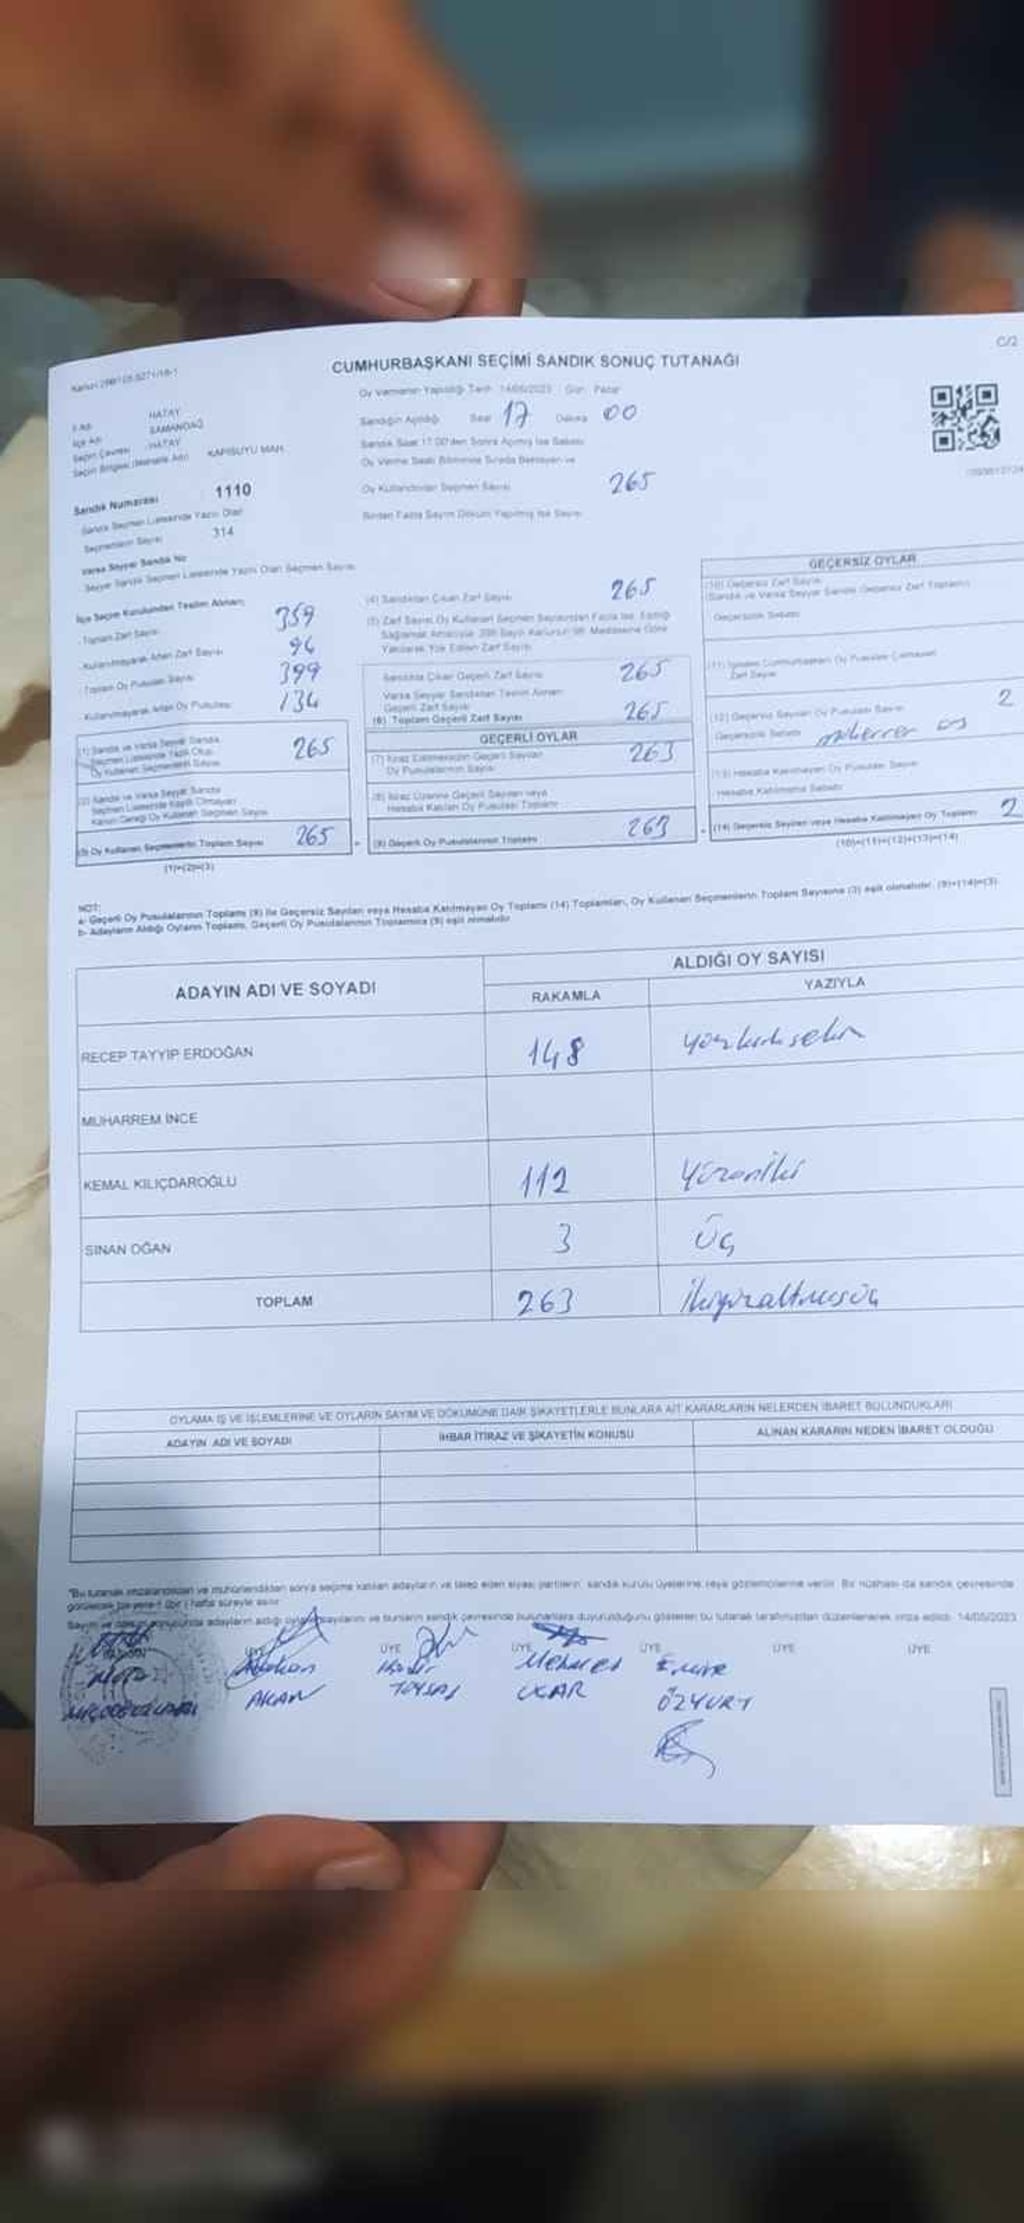 C/2
CUMHURBAŞKANI SEÇİMİ SANDIK SONUÇ TUTANAĞI
Oy Vermenin Yapıldığı Tarih 14/05/2023 Gün Pazar
Sandığın Açıldığı Saat 17 Dakika 00
Sandık Saat 17.00'den Sonra Açılmış İse Sebebi
Oy Verme Saati Bitiminde Sırada Bekleyen ve
Oy Kullandırılan Seçmen Sayısı 265
Birden Fazla Sayım Döküm Yapılmış İse Sayısı
İli Adı HATAY
İlçe Adı SAMANDAĞ
Seçim Çevresi HATAY
Seçim Bölgesi (Mahalle Adı) KAPISUYU MAH.
Sandık Numarası 1110
Sandık Seçmen Listesinde Yazılı Olan
Seçmenlerin Sayısı 314
Varsa Seyyar Sandık No
Seyyar Sandık Seçmen Listesinde Yazılı Olan Seçmen Sayısı
İlçe Seçim Kurulundan Teslim Alınan;
Toplam Zarf Sayısı 359
Kullanılmayarak Artan Zarf Sayısı 94
Toplam Oy Pusulası Sayısı 399
Kullanılmayarak Artan Oy Pusulası 134
(1) Sandık ve Varsa Seyyar Sandık
Seçmen Listesinde Yazılı Olup
Oy Kullanan Seçmenlerin Sayısı 265
(2) Sandık ve Varsa Seyyar Sandık
Seçmen Listesinde Kayıtlı Olmayan
Kanun Gereği Oy Kullanan Seçmen Sayısı
(3) Oy Kullanan Seçmenlerin Toplam Sayısı 265
(1)+(2)=(3)
(4) Sandıktan Çıkan Zarf Sayısı 265
(5) Zarf Sayısı Oy Kullanan Seçmen Sayısından Fazla İse, Eşitliği
Sağlamak Amacıyla 298 Sayılı Kanunun 98. Maddesine Göre
Yakılarak Yok Edilen Zarf Sayısı
Sandıkta Çıkan Geçerli Zarf Sayısı 265
Varsa Seyyar Sandıktan Teslim Alınan
Geçerli Zarf Sayısı
(6) Toplam Geçerli Zarf Sayısı 265
GEÇERLİ OYLAR
(7) İtiraz Edilmeksizin Geçerli Sayılan
Oy Pusulalarının Sayısı 263
(8) İtiraz Üzerine Geçerli Sayılan veya
Hesaba Katılan Oy Pusulası Toplamı
(9) Geçerli Oy Pusulalarının Toplamı 263
GEÇERSİZ OYLAR
(10) Geçersiz Zarf Sayısı
(Sandık ve Varsa Seyyar Sandık Geçersiz Zarf Toplamı)
Geçersizlik Sebebi
(12) Geçersiz Sayılan Oy Pusulası Sayısı 2
Geçersizlik Sebebi
(13) Hesaba Katılmayan Oy Pusulası Sayısı
Hesaba Katılmama Sebebi
(14) Geçersiz Sayılan veya Hesaba Katılmayan Oy Toplamı 2
(10)+(11)+(12)+(13)=(14)
NOT:
a- Geçerli Oy Pusulalarının Toplamı (9) ile Geçersiz Sayılan veya Hesaba Katılmayan Oy Toplamı (14) Toplamları, Oy Kullanan Seçmenlerin Toplam Sayısına (3) eşit olmalıdır. (9)+(14)=(3)
b- Adayların Aldığı Oyların Toplamı, Geçerli Oy Pusulalarının Toplamına (9) eşit olmalıdır.
ADAYIN ADI VE SOYADI ALDIĞI OY SAYISI
RAKAMLA YAZIYLA
RECEP TAYYİP ERDOĞAN 148 yüzkırksekiz
MUHARREM İNCE
KEMAL KILIÇDAROĞLU 112 Yüzoniki
SİNAN OĞAN 3 Üç
TOPLAM 263 İkiyüzaltmışüç
OYLAMA İŞ VE İŞLEMLERİNE VE OYLARIN SAYIM VE DÖKÜMÜNE DAİR ŞİKAYETLERLE BUNLARA AİT KARARLARIN NELERDEN İBARET BULUNDUKLARI
ADAYIN ADI VE SOYADI İHBAR İTİRAZ VE ŞİKAYETİN KONUSU ALINAN KARARIN NEDEN İBARET OLDUĞU
"Bu tutanak imzalandıktan ve mühürlendikten sonra seçime katılan adayların ve talep eden siyasi partilerin sandık kurulu üyelerine veya gözlemcilerine verilir. Bir nüshası da sandık çevresinde
görülecek bir yere 1 (bir) hafta süreyle asılır.
Sayım ve döküm sonucunda adayların aldığı oyların sayılarını ve bunların sandık çevresinde bulunanlara duyurulduğunu gösteren bu tutanak tarafımızdan düzenlenerek imza edildi. 14/05/2023
ÜYE ÜYE ÜYE ÜYE ÜYE
Mehmet Emine
AKAN UÇAR ÖZYURT